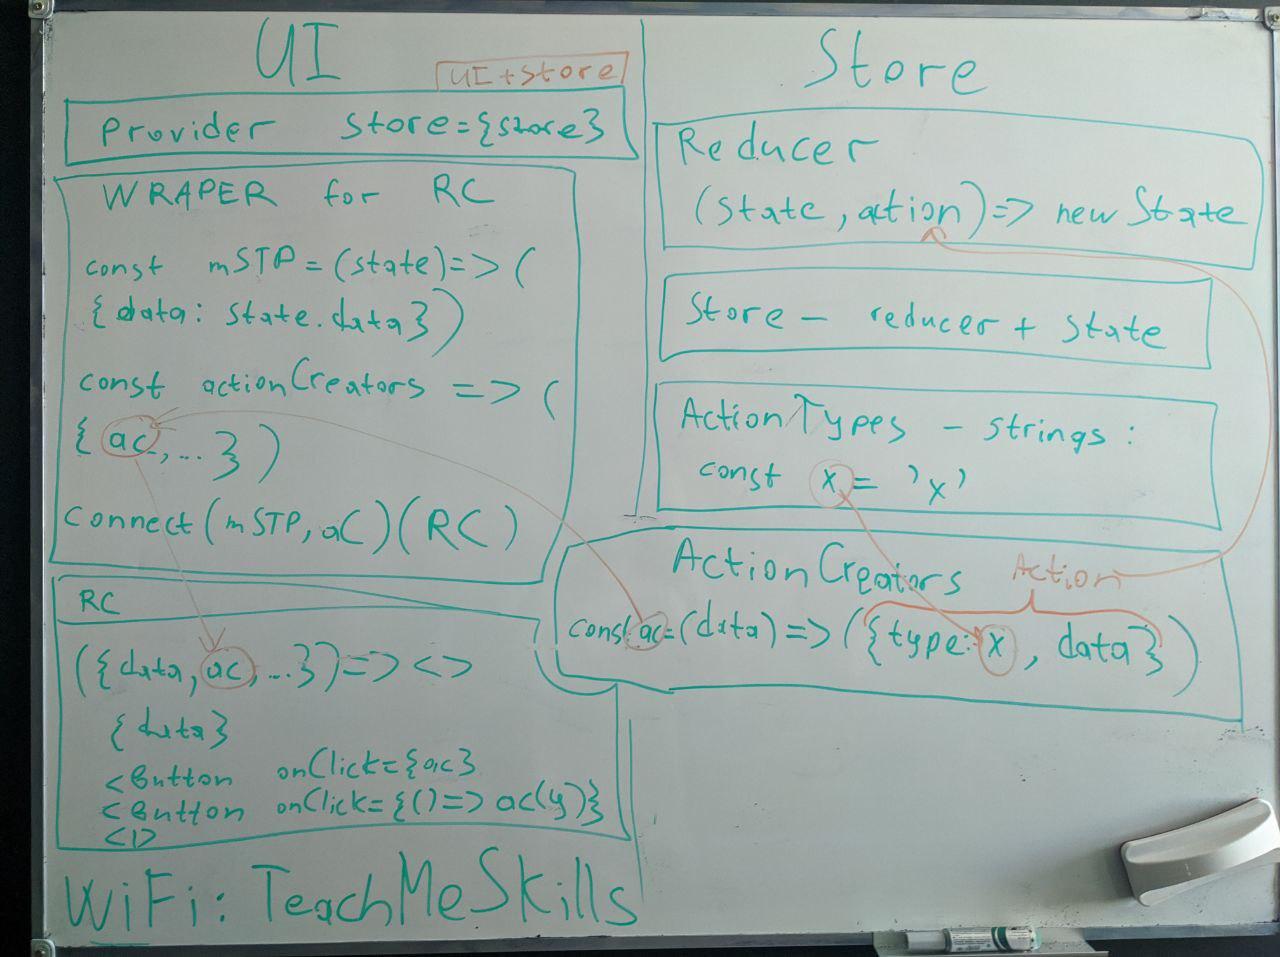 UI
UI + Store
Provider store={store}
WRAPER for RC
const mSTP = (state)=> (
{data: state.data})
const actionCreators => (
{ac,... })
connect(mSTP, aC)(RC)
RC
({data, ac, ...})=> <>
{data}
<Button onClick={ac}
<Button onClick={()=> ac(y)}
</>
WiFi: TeachMeSkills
Store
Reducer
(state, action)=> new State
Store — reducer + state
ActionTypes - strings:
const x = 'x'
ActionCreators Action
const ac=(data)=>({type: x, data})